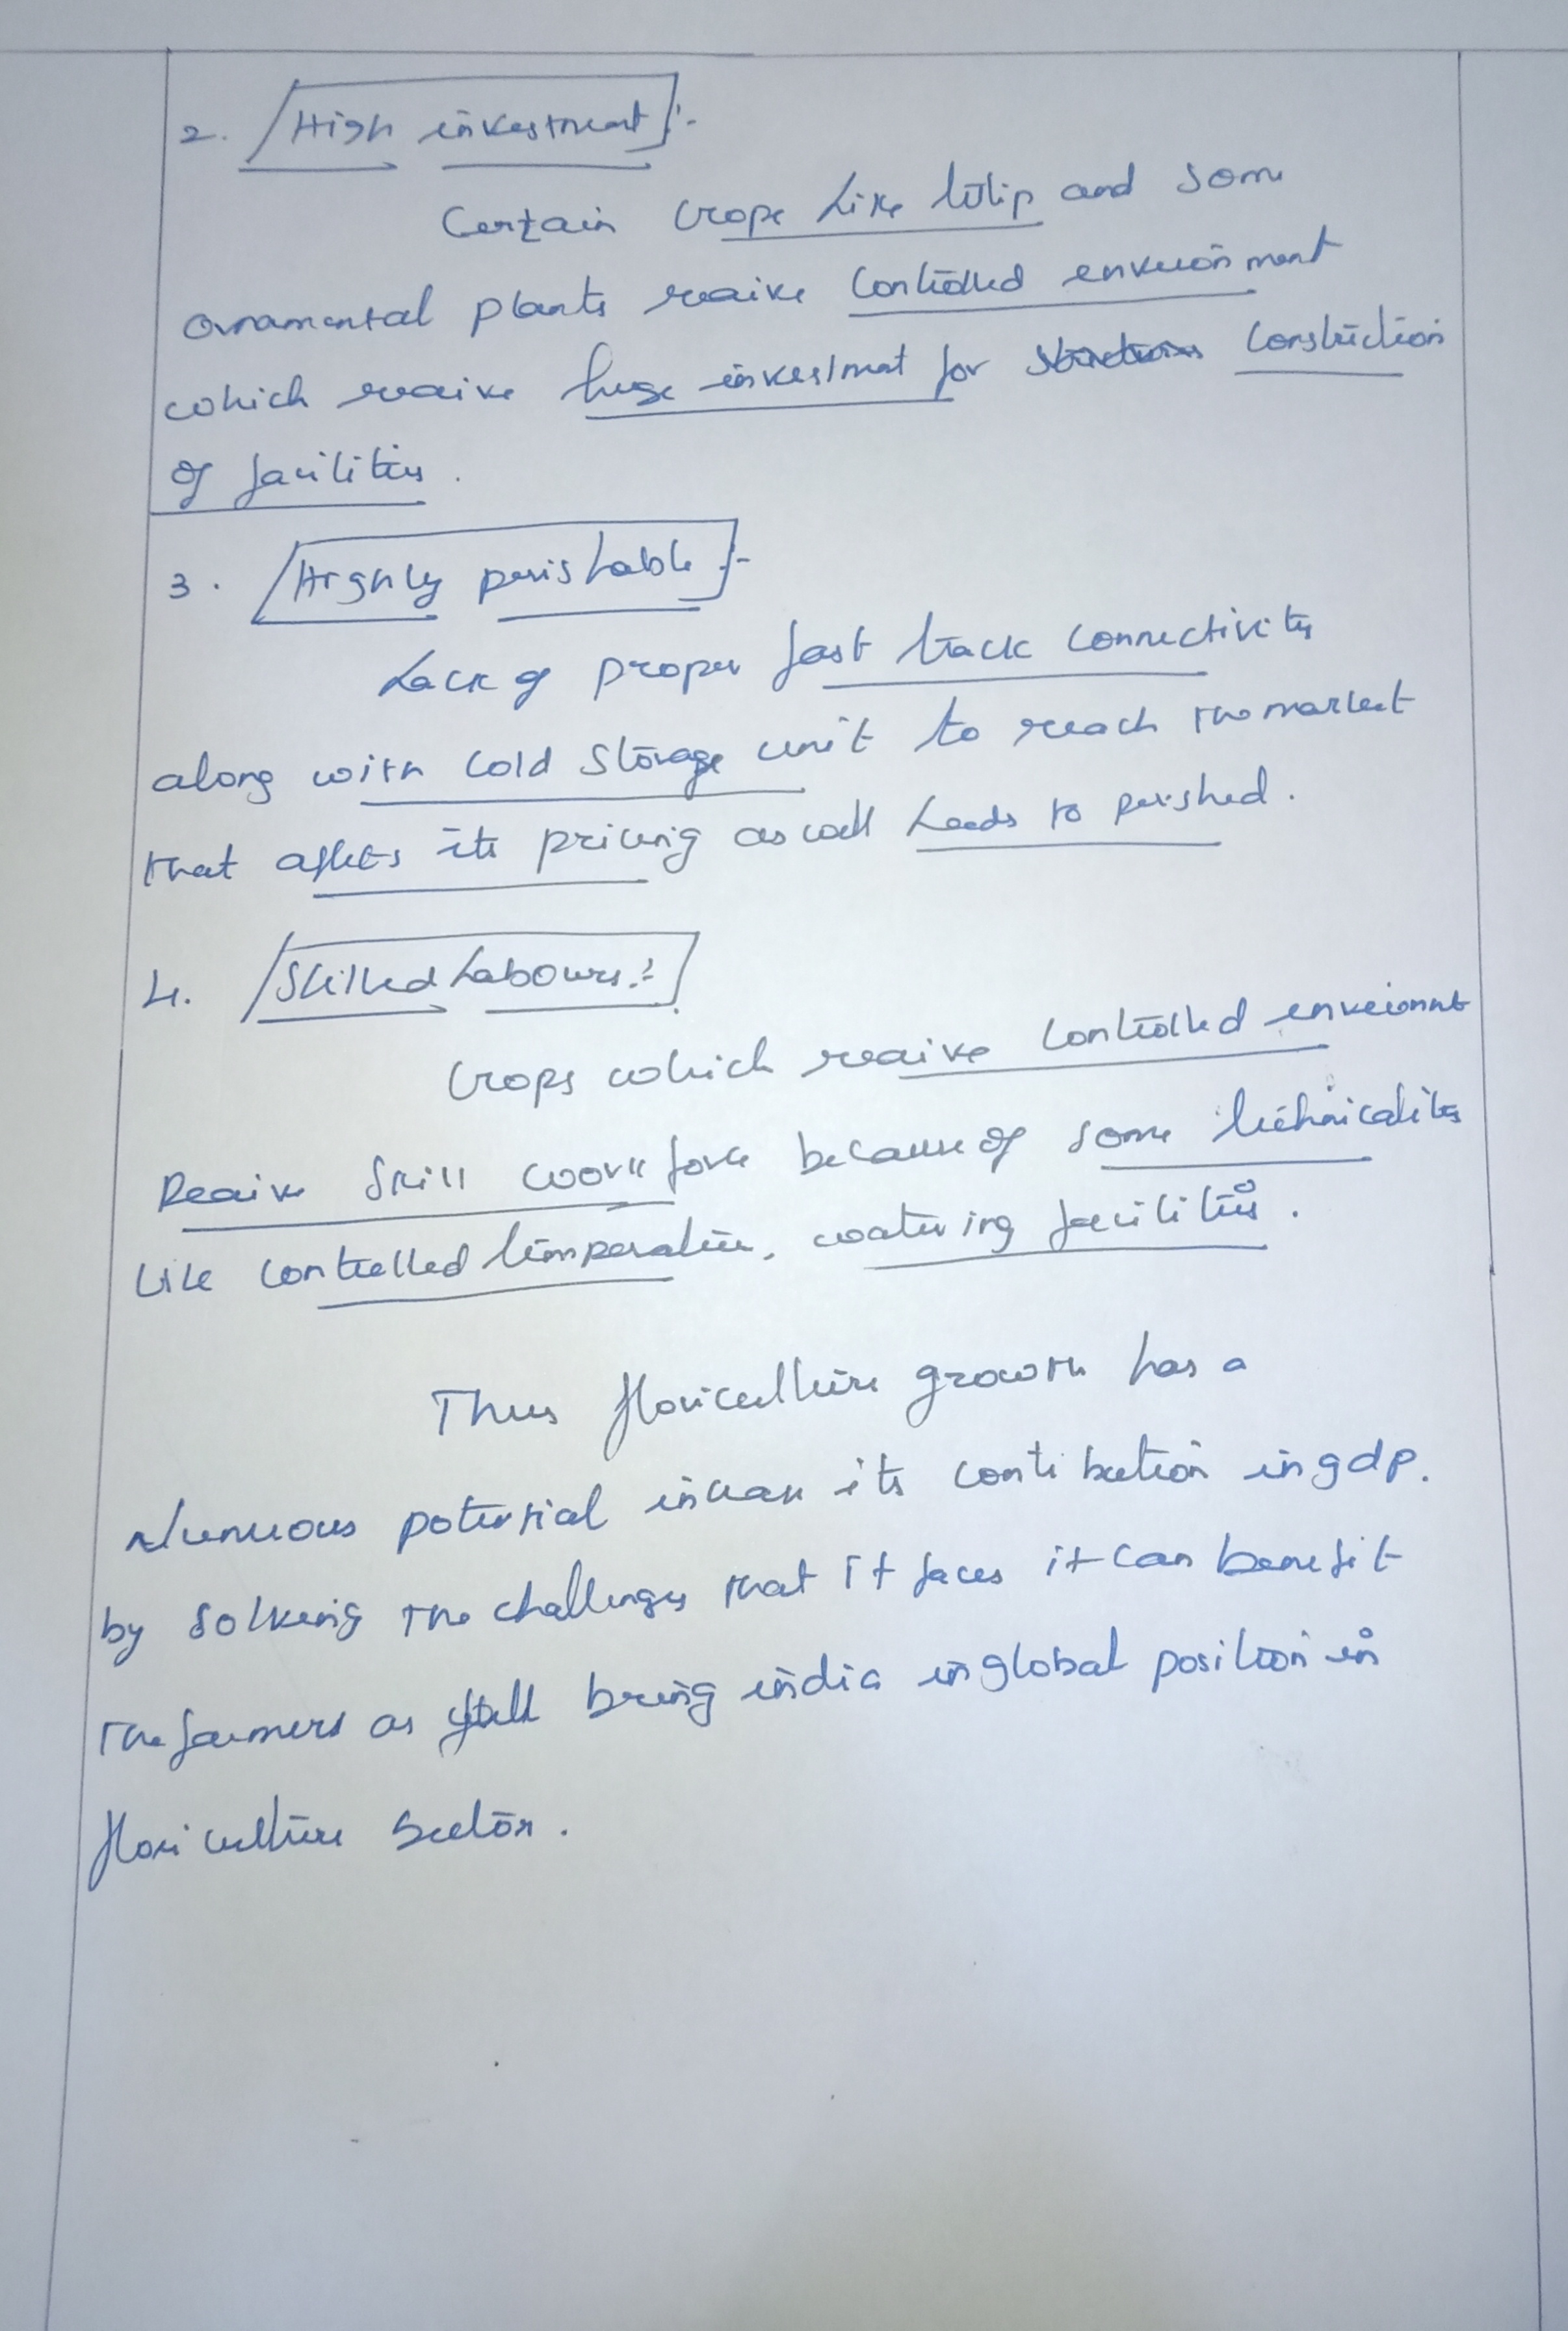 2. High investment :-
Certain crops like tulip and some
ornamental plants reaive controlled environment
which reaive huge investmat for construction
of facilities.
3. Highly perishable :-
Lack of proper fast track connectivity
along with cold storage unit to reach the market
that affects its pricing as well leads to perished.
4. Skilled Labours :-
Crops which reaive controlled enveionmt
Reaive skill workforce because of some technicalites
like controlled temperature, watering facilities.
Thus floriculture growth has a
potential its contribution in gdp.
by solving the challenges that it faces it can benefit
the farmers as well bring india in global position in
floriculture sector.